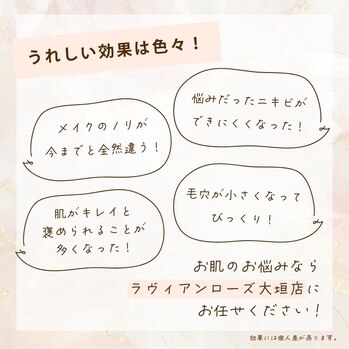 うれしい効果は色々！
悩みだったニキビが
できにくくなった！
メイクのノリが
今までと全然違う！
毛穴が小さくなって
びっくり！
肌がキレイと
褒められることが
多くなった！
お肌のお悩みなら
ラヴィアンローズ大垣店に
お任せください！
効果には個人差があります。